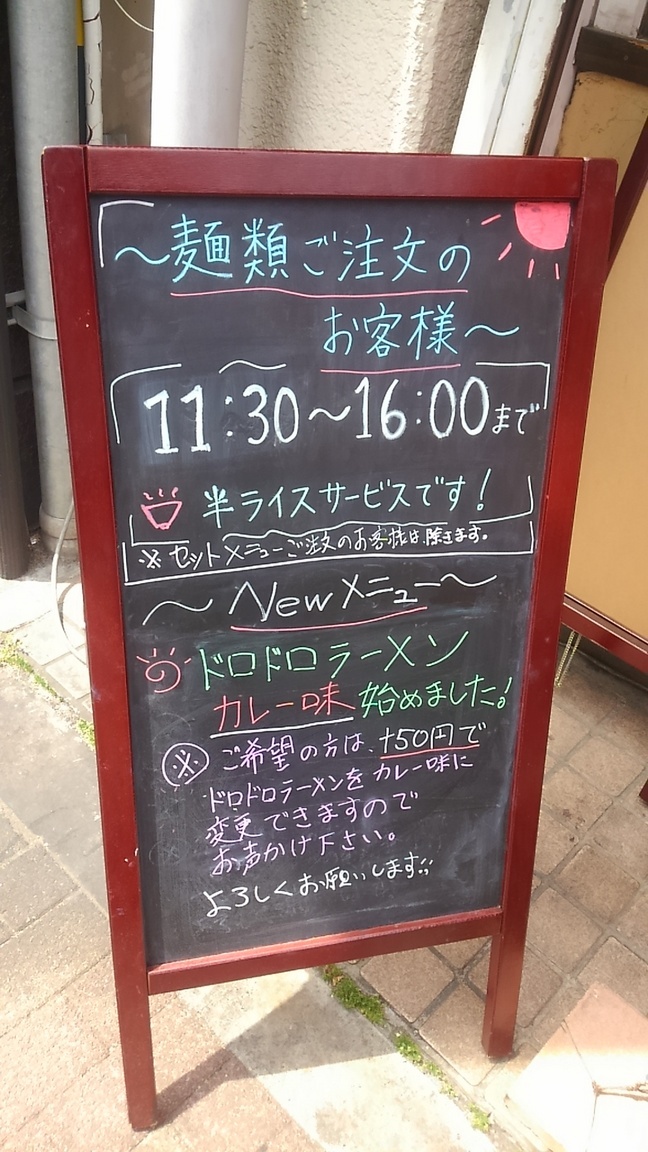 ～麺類ご注文の
お客様～
11:30～16:00まで
半ライスサービスです!
※セットメニューご注文のお客様は、除きます。
～Newメニュー～
ドロドロラーメン
カレー味 始めました!
※ ご希望の方は、+50円で
ドロドロラーメンをカレー味に
変更できますので
お声かけ下さい。
よろしくお願いします!!